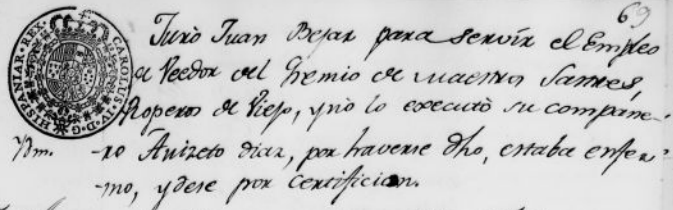 69
HISPANIAR. REX. CAROLUS. IV. D. G.
Juró Juan Bejar para servir el Empleo
de Veedor del Gremio de Maestros Sastres,
Roperos de Viejo, y no lo executó su compañe-
Ydm. -ro Anizeto diaz, por haverse dho, estaba enfer-
-mo, y dese por Certificicion.